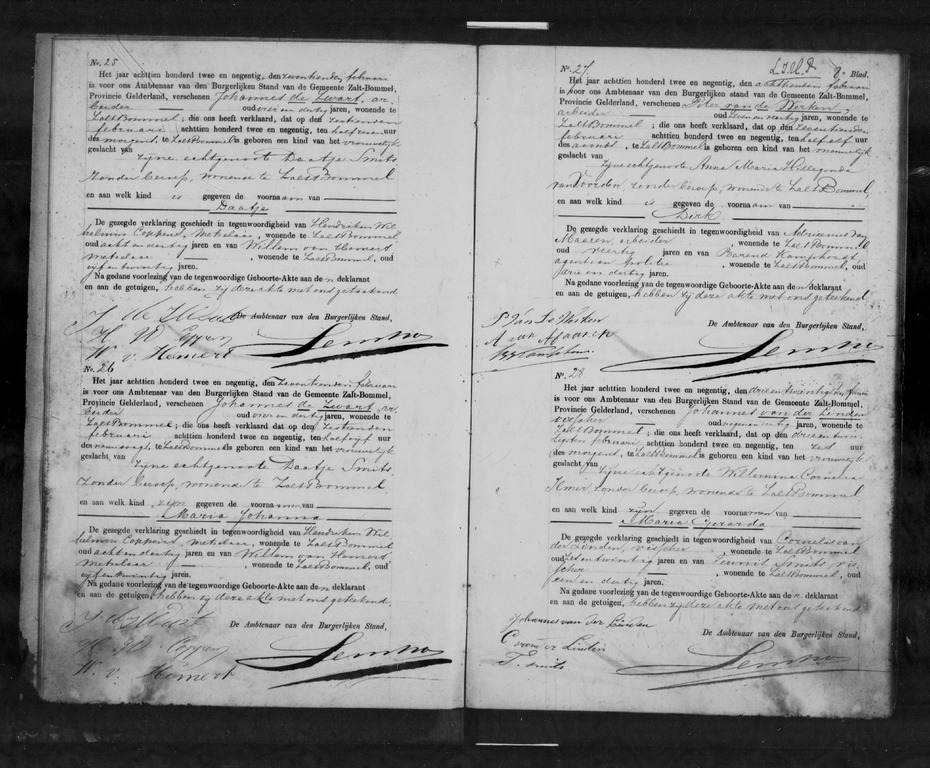 No. 25
Het jaar achttien honderd twee en negentig, den zeventienden februari
is voor ons Ambtenaar van den Burgerlijken Stand van de Gemeente Zalt-Bommel,
Provincie Gelderland, verschenen Johannes de Zwart, ar-
beider oud over en dertig jaren, wonende te
Zalt Bommel; die ons heeft verklaard, dat op den zestienden
februari achttien honderd twee en negentig, ten half zeven uur
des morgens, te Zalt Bommel is geboren een kind van het vrouwelijk
geslacht van
zijne echtgenoote Daatje Smits,
zonder beroep, wonende te Zalt Bommel
en aan welk kind is gegeven de voornaam van
Daatje
De gezegde verklaring geschiedt in tegenwoordigheid van Hendrikus Wil-
helmus Coppens, metselaar, wonende te Zalt Bommel,
oud acht en dertig jaren en van Willem van Hemert
metselaar, wonende te Zalt Bommel, oud
vijf en twintig jaren.
Na gedane voorlezing van de tegenwoordige Geboorte-Akte aan den deklarant
en aan de getuigen, hebben zij deze akte met ons geteekend
De Ambtenaar van den Burgerlijken Stand,
J de Zwart
H W Coppens
W. v. Hemert
No. 26
Het jaar achttien honderd twee en negentig, den zeventienden februari
is voor ons Ambtenaar van den Burgerlijken Stand van de Gemeente Zalt-Bommel,
Provincie Gelderland, verschenen Johannes de Zwart, ar-
beider oud over en dertig jaren, wonende te
Zalt Bommel; die ons heeft verklaard, dat op den zestienden
februari achttien honderd twee en negentig, ten half vijf uur
des namiddags, te Zalt Bommel is geboren een kind van het vrouwelijk
geslacht van
zijne echtgenoote Daatje Smits,
zonder beroep, wonende te Zalt Bommel
en aan welk kind zijn gegeven de voornamen van
Maria Johanna
De gezegde verklaring geschiedt in tegenwoordigheid van Hendrikus Wil-
helmus Coppens, metselaar, wonende te Zalt Bommel
oud acht en dertig jaren en van Willem van Hemert
metselaar, wonende te Zalt Bommel, oud
vijf en twintig jaren.
Na gedane voorlezing van de tegenwoordige Geboorte-Akte aan den deklarant
en aan de getuigen, hebben zij deze akte met ons geteekend.
De Ambtenaar van den Burgerlijken Stand,
J de Zwart
H W Coppens
W. v. Hemert
8e Blad.
No. 27
Het jaar achttien honderd twee en negentig, den achttienden februari
is voor ons Ambtenaar van den Burgerlijken stand van de Gemeente Zalt-Bommel,
Provincie Gelderland, verschenen Peter van de Werken
arbeider oud zeven en veertig jaren, wonende te
Zalt Bommel; die ons heeft verklaard, dat op den zeventienden
februari achttien honderd twee en negentig, ten half elf uur
des avonds, te Zalt Bommel is geboren een kind van het mannelijk
geslacht van
zijne echtgenoote Anna Maria Hillegonda
van Voorden, zonder beroep, wonende te Zalt Bommel
en aan welk kind is gegeven de voornaam van
Dirk
De gezegde verklaring geschiedt in tegenwoordigheid van Adrianus van
Maaren, arbeider, wonende te Zalt Bommel
oud veertig jaren en van Barend Kamphorst,
agent van Politie, wonende te Zalt Bommel, oud
drie en dertig jaren.
Na gedane voorlezing van de tegenwoordige Geboorte-Akte aan den deklarant
en aan de getuigen, hebben zij deze akte met ons geteekend
De Ambtenaar van den Burgerlijken Stand,
P Van De Werken
A van Maaren
No. 28
Het jaar achttien honderd twee en negentig, den drie en twintigsten februari
is voor ons Ambtenaar van den Burgerlijken Stand van de Gemeente Zalt-Bommel,
Provincie Gelderland, verschenen Johannes van der Linden
visscher oud negen en dertig jaren, wonende te
Zalt Bommel; die ons heeft verklaard, dat op den drie en twin-
tigsten februari, achttien honderd twee en negentig, ten zes uur
des morgens, te Zalt Bommel is geboren een kind van het vrouwelijk
geslacht van
zijne echtgenoote Willemina Cornelia
zonder beroep, wonende te Zalt Bommel
en aan welk kind zijn gegeven de voornamen van
Maria Gerarda
De gezegde verklaring geschiedt in tegenwoordigheid van Cornelis van
der Linden, visscher, wonende te Zalt Bommel
oud zes en twintig jaren en van Teunis Smits, vis-
scher, wonende te Zalt Bommel, oud
zes en dertig jaren.
Na gedane voorlezing van de tegenwoordige Geboorte-Akte aan den deklarant
en aan de getuigen, hebben zij deze akte met ons geteekend
De Ambtenaar van den Burgerlijken Stand,
Johannes van der Linden
C van der Linden
T. Smits